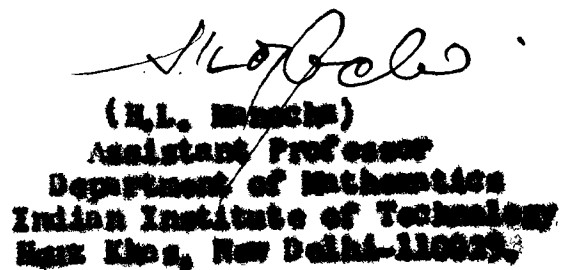 (H.L. Manocha)
Assistant Professor
Department of Mathematics
Indian Institute of Technology
Hauz Khas, New Delhi-110029.